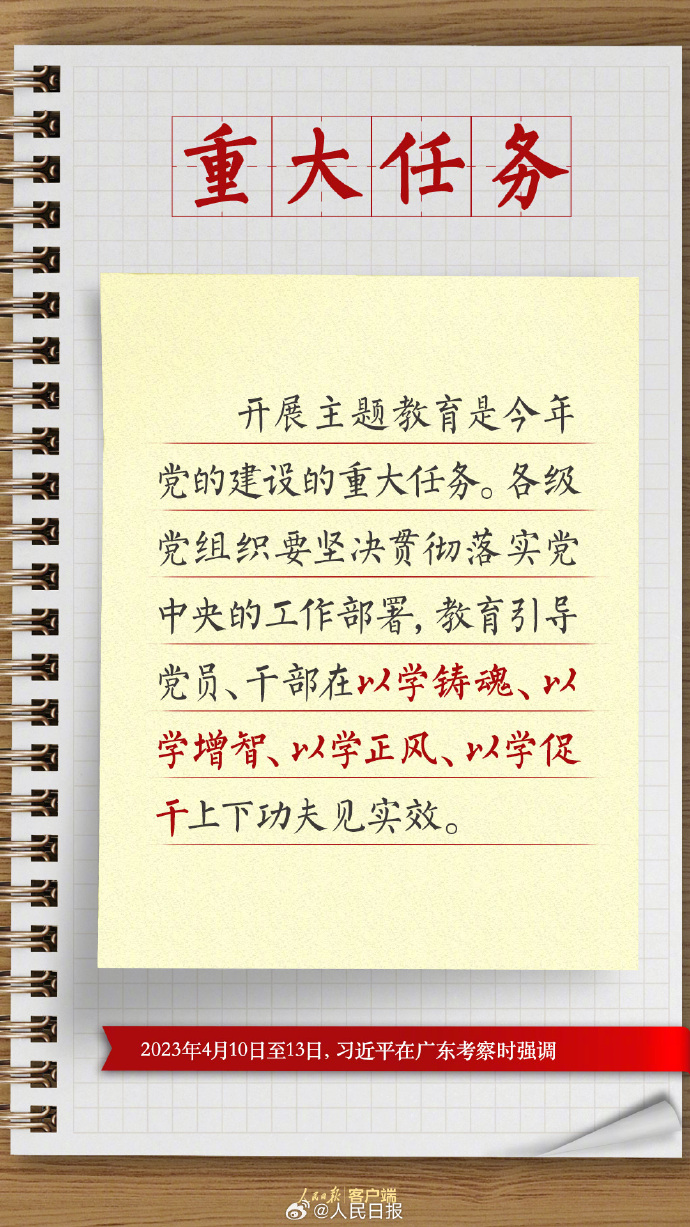 重大任务
开展主题教育是今年
党的建设的重大任务。各级
党组织要坚决贯彻落实党
中央的工作部署,教育引导
党员、干部在以学铸魂、以
学增智、以学正风、以学促
干上下功夫见实效。
2023年4月10日至13日,习近平在广东考察时强调
人民日报 客户端
@人民日报